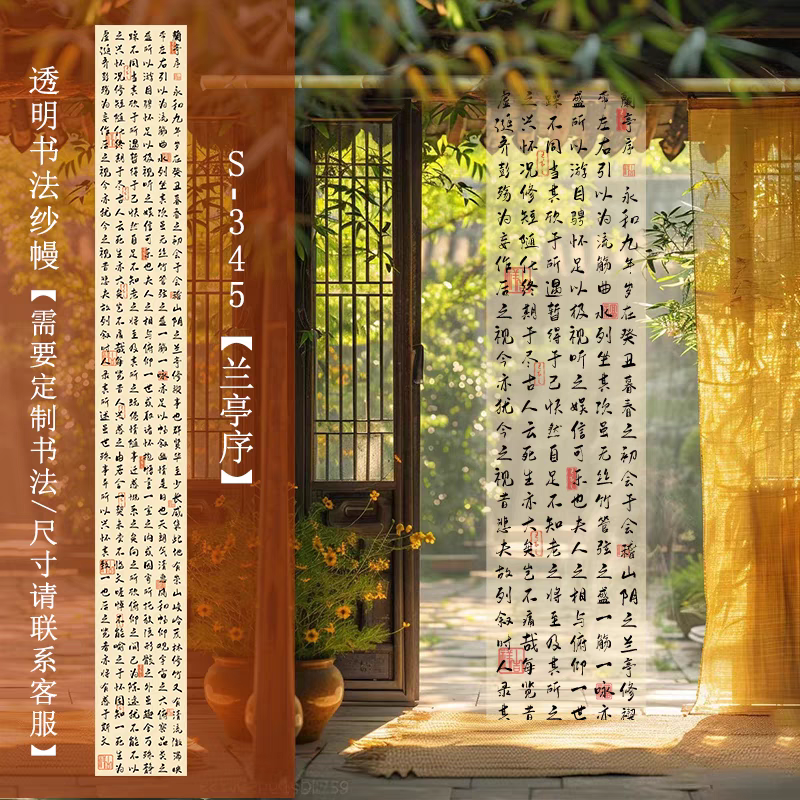 透明书法纱幔【需要定制书法/尺寸请联系客服】
S-345【兰亭序】
蘭亭序 永和九年岁在癸丑暮春之初会于会稽山阴之兰亭修禊事也群贤毕至少长咸集此地有崇山峻岭茂林修竹又有清流激湍映
带左右引以为流觞曲水列坐其次虽无丝竹管弦之盛一觞一咏亦足以畅叙幽情是日也天朗气清惠风和畅仰观宇宙之大俯察品类之
盛所以游目骋怀足以极视听之娱信可乐也夫人之相与俯仰一世或取诸怀抱悟言一室之内或因寄所托放浪形骸之外虽趣舍万殊静
躁不同当其欣于所遇暂得于己快然自足不知老之将至及其所之既倦情随事迁感慨系之矣向之所欣俯仰之间已为陈迹犹不能不以
之兴怀况修短随化终期于尽古人云死生亦大矣岂不痛哉每览昔人兴感之由若合一契未尝不临文嗟悼不能喻之于怀固知一死生为
虚诞齐彭殇为妄作后之视今亦犹今之视昔悲夫故列叙时人录其所述虽世殊事异所以兴怀其致一也后之览者亦将有感于斯文
蘭亭序 永和九年岁在癸丑暮春之初会于会稽山阴之兰亭修禊
带左右引以为流觞曲水列坐其次虽无丝竹管弦之盛一觞一咏亦
盛所以游目骋怀足以极视听之娱信可乐也夫人之相与俯仰一世
躁不同当其欣于所遇暂得于己快然自足不知老之将至及其所之
之兴怀况修短随化终期于尽古人云死生亦大矣岂不痛哉每览昔
虚诞齐彭殇为妄作后之视今亦犹今之视昔悲夫故列叙时人录其